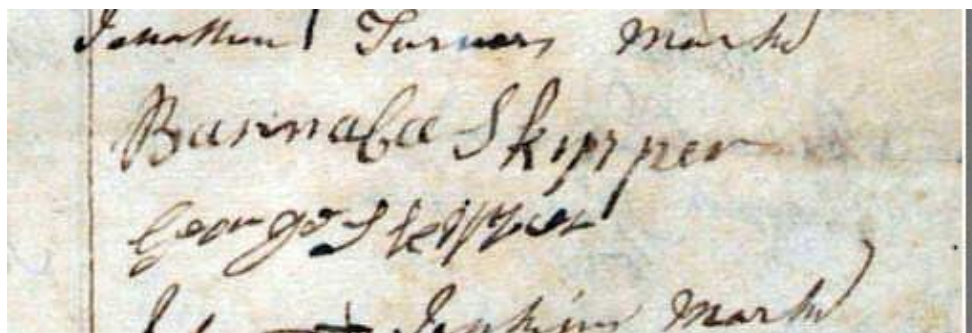 Jonathan Turners Mark
Barnnaba Skipper
George Skipper
Jenkins Mark